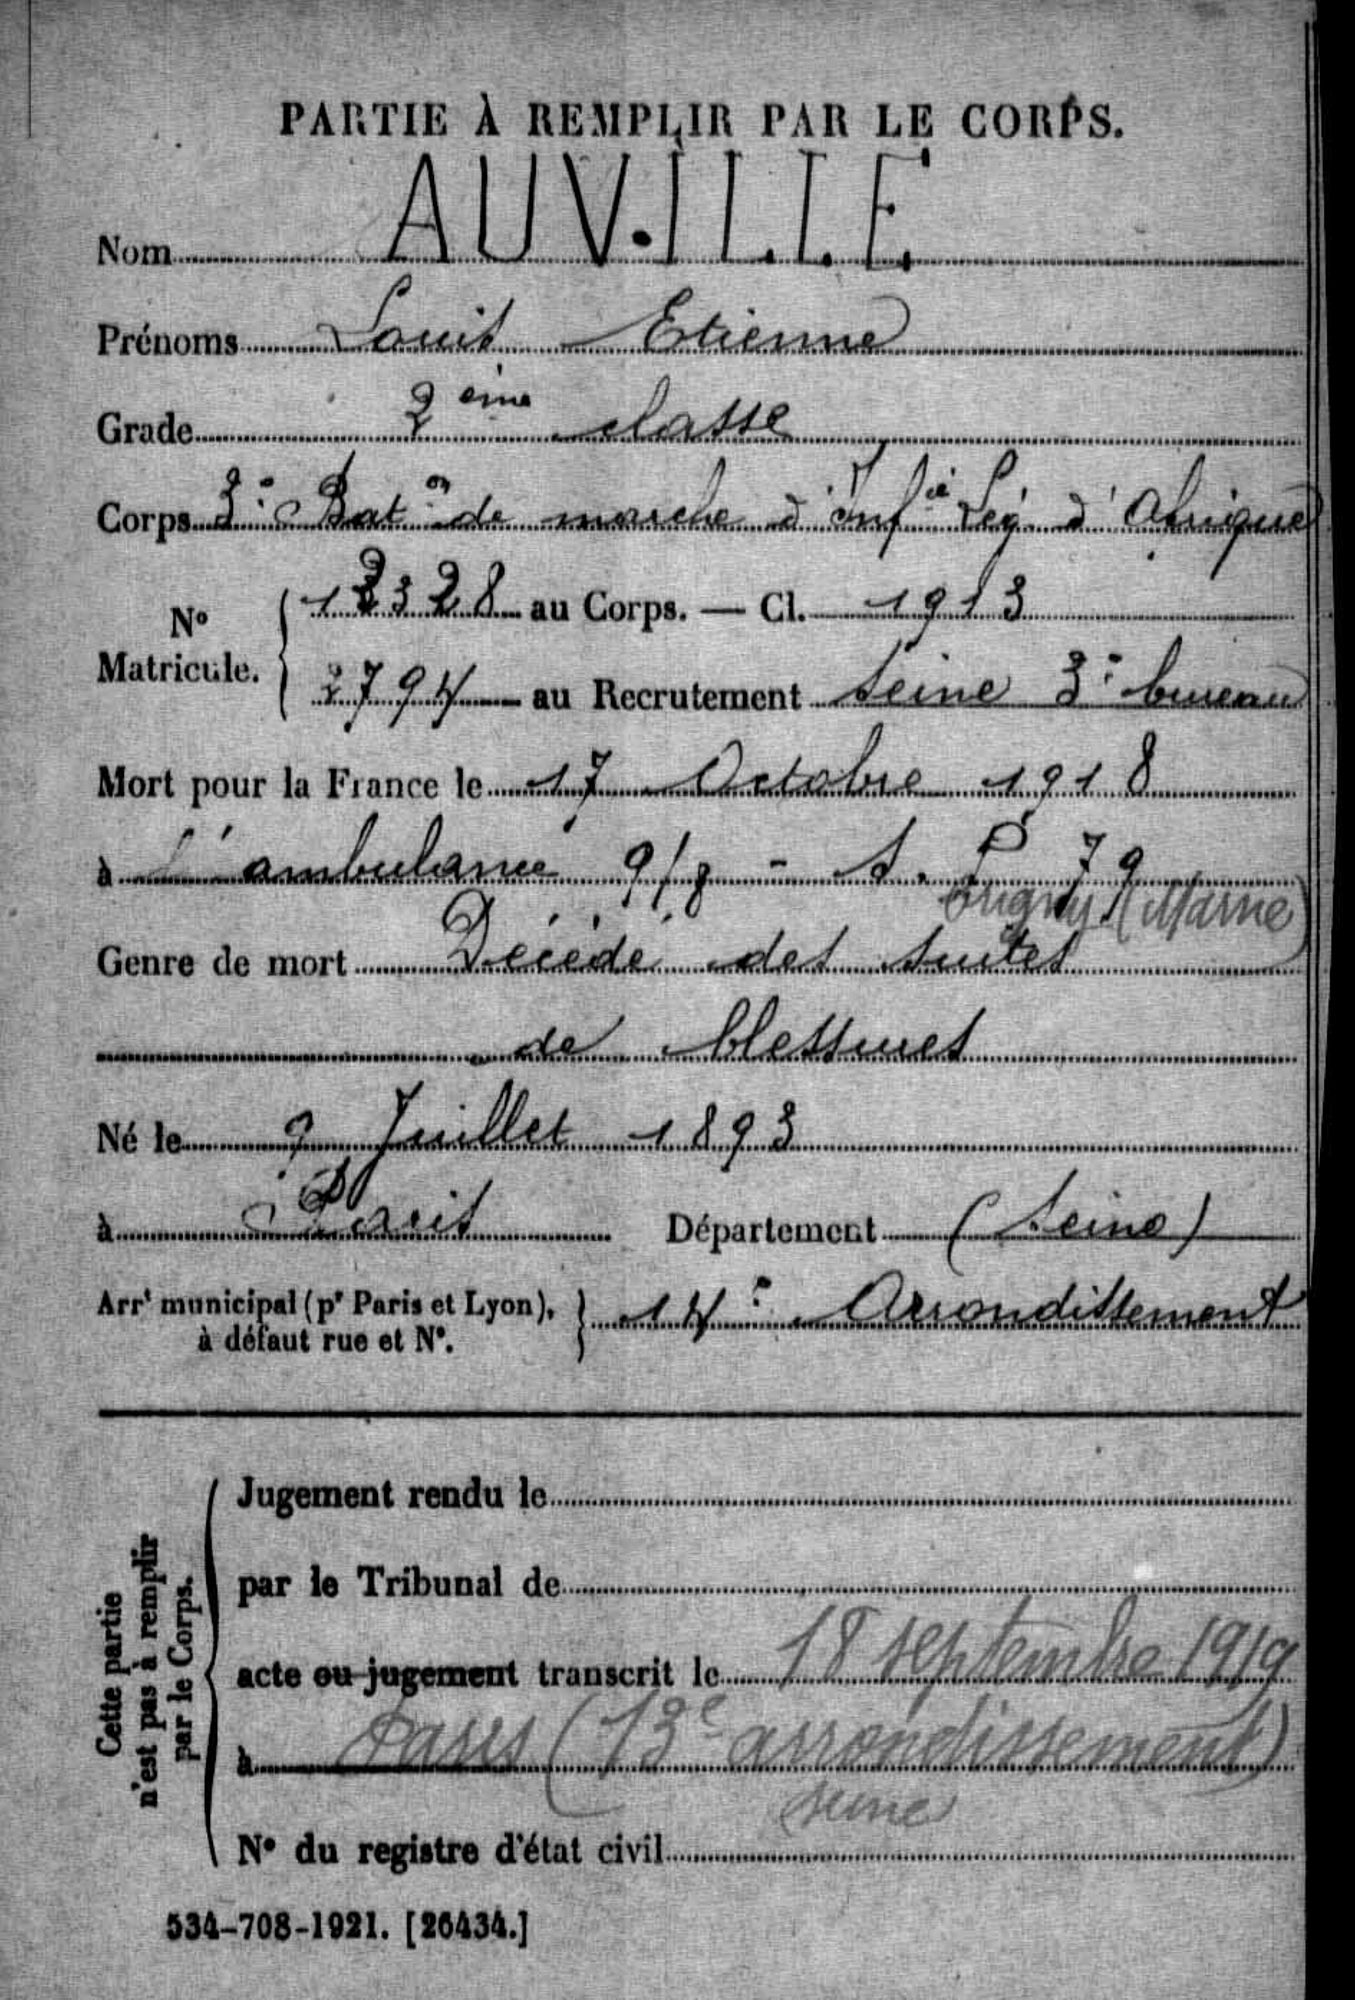 PARTIE À REMPLIR PAR LE CORPS.
Nom AUVILLE
Prénoms Louis Etienne
Grade 2ème classe
Corps 3e Baton de marche d'Infie Lég. d'Afrique
No Matricule. 12328 au Corps. — Cl. 1913
2794 au Recrutement Seine 3e bureau
Mort pour la France le 17 Octobre 1918
à L'ambulance 9/8 - S. P 79
(Marne)
Genre de mort Décédé des suites
de blessures
Né le 9 Juillet 1893
à Paris Département (Seine)
Arrt municipal (pr Paris et Lyon), à défaut rue et No. 14e Arrondissement
Cette partie n'est pas à remplir par le Corps.
Jugement rendu le
par le Tribunal de
acte ou jugement transcrit le 18 septembre 1919
à Paris (13e arrondissement)
Seine
No du registre d'état civil
534-708-1921. [26434.]